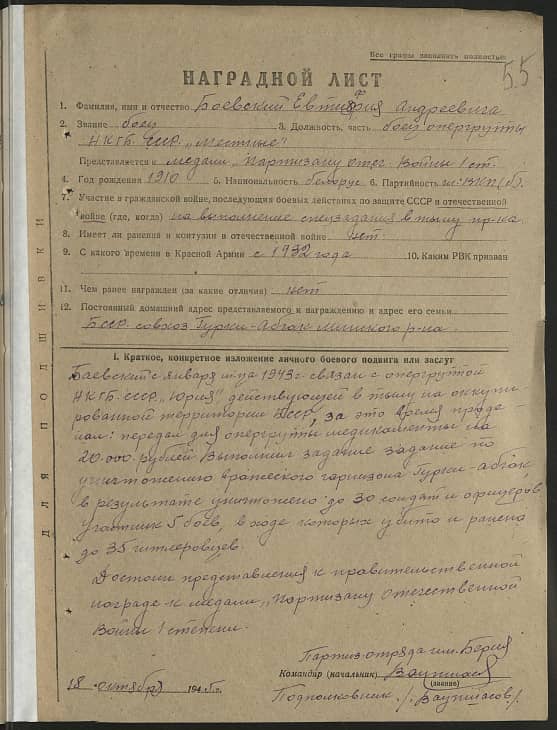 Все графы заполнять полностью
55
НАГРАДНОЙ ЛИСТ
1. Фамилия, имя и отчество Боевский Евтифия Андреевича
2. Звание боец 3. Должность, часть боец опергруппы
НКГБ СССР „Местные"
Представляется к медали „Партизану Отеч. Войны 1 ст.
4. Год рождения 1910 5. Национальность белорус 6. Партийность чл. ВКП(б)
7. Участие в гражданской войне, последующих боевых действиях по защите СССР и отечественной
войне (где, когда) на выполнение спецзадания в тылу пр-ка
8. Имеет ли ранения и контузии в отечественной войне нет
9. С какого времени в Красной Армии с 1932 года 10. Каким РВК призван
11. Чем ранее награжден (за какие отличия) нет
12. Постоянный домашний адрес представляемого к награждению и адрес его семьи
БССР совхоз Минского р-на
I. Краткое, конкретное изложение личного боевого подвига или заслуг
Баевский с января м-ца 1943 г. связан с опергруппой
НКГБ СССР „Юрия", действующей в тылу на оккупи
рованной территории БССР, за это время проде
лал: передал для опергруппы медикаменты на
20.000 рублей. Выполнил задание задание по
уничтожению вражеского гарнизона
в результате уничтожено до 30 солдат и офицеров
Участник 5 боев, в ходе которых убито и ранено
до 35 гитлеровцев.
Достоин представления к правительственной
награде - к медали „Партизану отечественной
Войны 1 степени.
Партиз. отряда им. Берия
Командир (начальник) Ваупшасов
(звание)
18 октября 194 г.
Подполковник /. Ваупшасов./
ДЛЯ ПОДШИВКИ